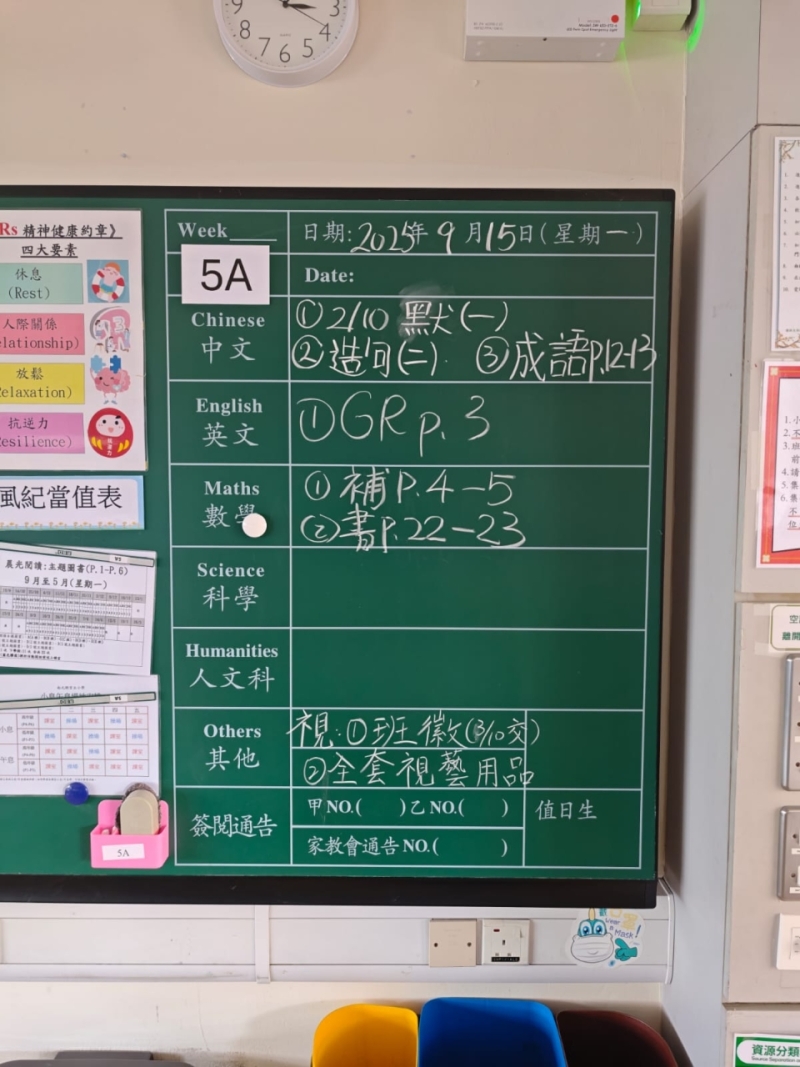 9
3
8
4
7
6
5
Rs 精神健康約章》
四大要素
休息
(Rest)
人際關係
elationship)
放鬆
elaxation)
抗逆力
esilience)
風紀當值表
晨光閱讀:主題圖書(P.1-P.6)
9月至5月(星期一)
Week____ 日期:2025年9月15日(星期一)
5A
Date:
Chinese
中文
①2/10 默(一)
②造句(二) ③成語p.12-13
English
英文
①GR p.3
Maths
數學
①補P.4-5
②書p.22-23
Science
科學
Humanities
人文科
Others
其他
視:①班徽(3/10交)
②全套視藝用品
簽閱通告
甲NO.( )乙NO.( )
值日生
家教會通告NO.( )
5A
資源分類